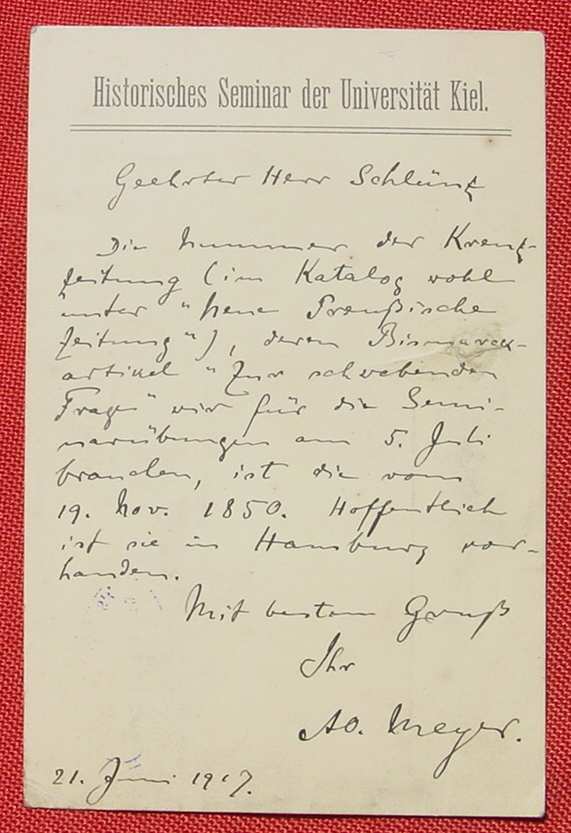 Historisches Seminar der Universität Kiel.
Geehrter Herr Schlünz
Die Nummer der Kreuz-
zeitung (im Katalog wohl
unter "Neue Preußische
Zeitung"), deren Bismarck-
artikel "Zur schwebenden
Frage" wir für die Semi-
narübungen am 5. Juli
brauchen, ist die vom
19. Nov. 1850. Hoffentlich
ist sie in Hamburg vor-
handen.
Mit bestem Gruß
Ihr
Ao. Meyer.
21. Juni 1917.